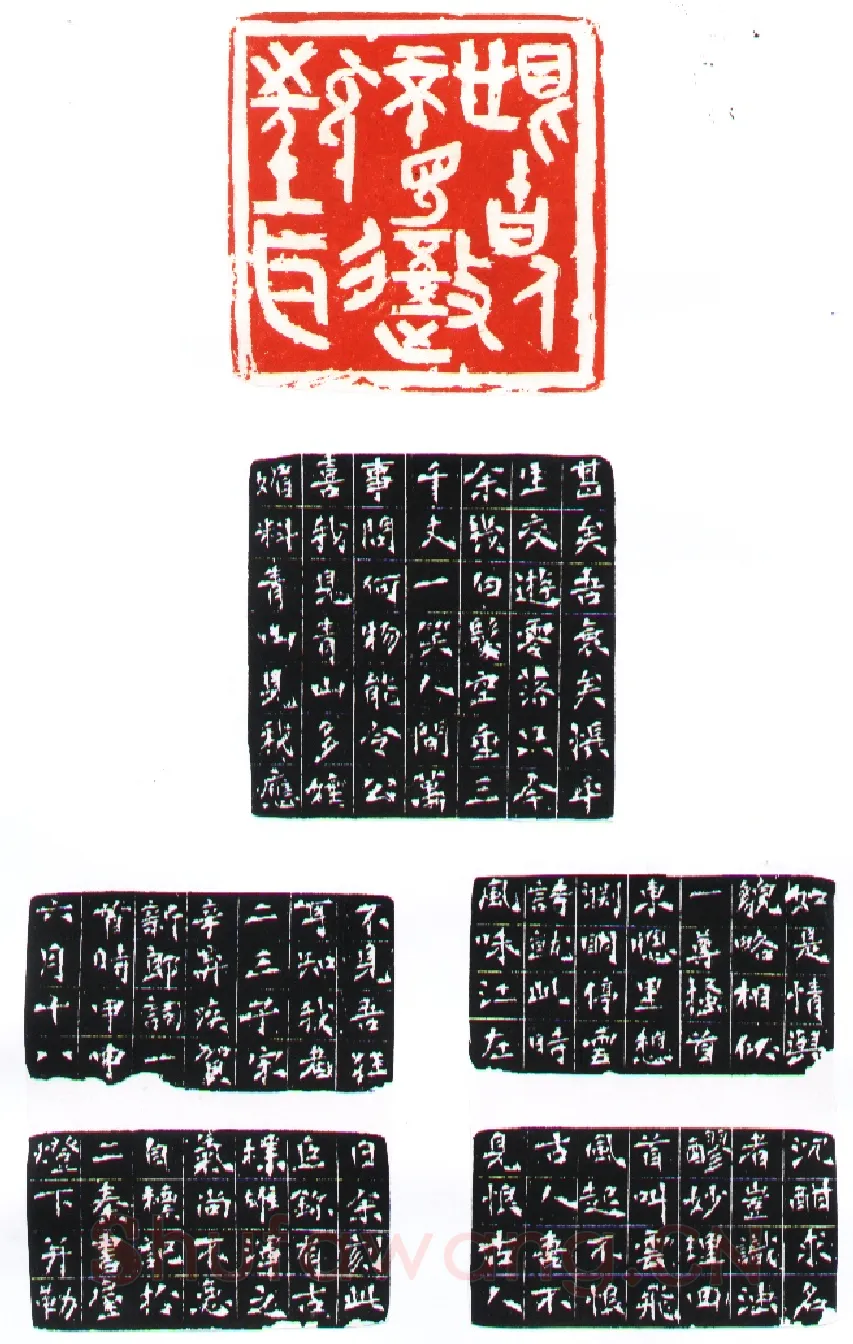 甚矣吾衰矣悵平
生交遊零落只今
余幾白髮空垂三
千丈一笑人間萬
事問何物能令公
喜我見青山多嫵
媚料青山見我應
如是情與
貌略相似
一尊搔首
東窗里想
渊明停雲
詩就此時
風味江左
沉酣求名
者豈識濁
醪妙理回
首叫雲飛
風起不恨
古人吾不
見恨古人
不見吾狂
耳知我者
二三子宋
辛弃疾賀
新郎詞一
首時甲申
六月十八
日余刻此
巨鉨有古
樸雄渾之
氣尚不
自記於
二書屋
燈下并勒
Shufawang.CN